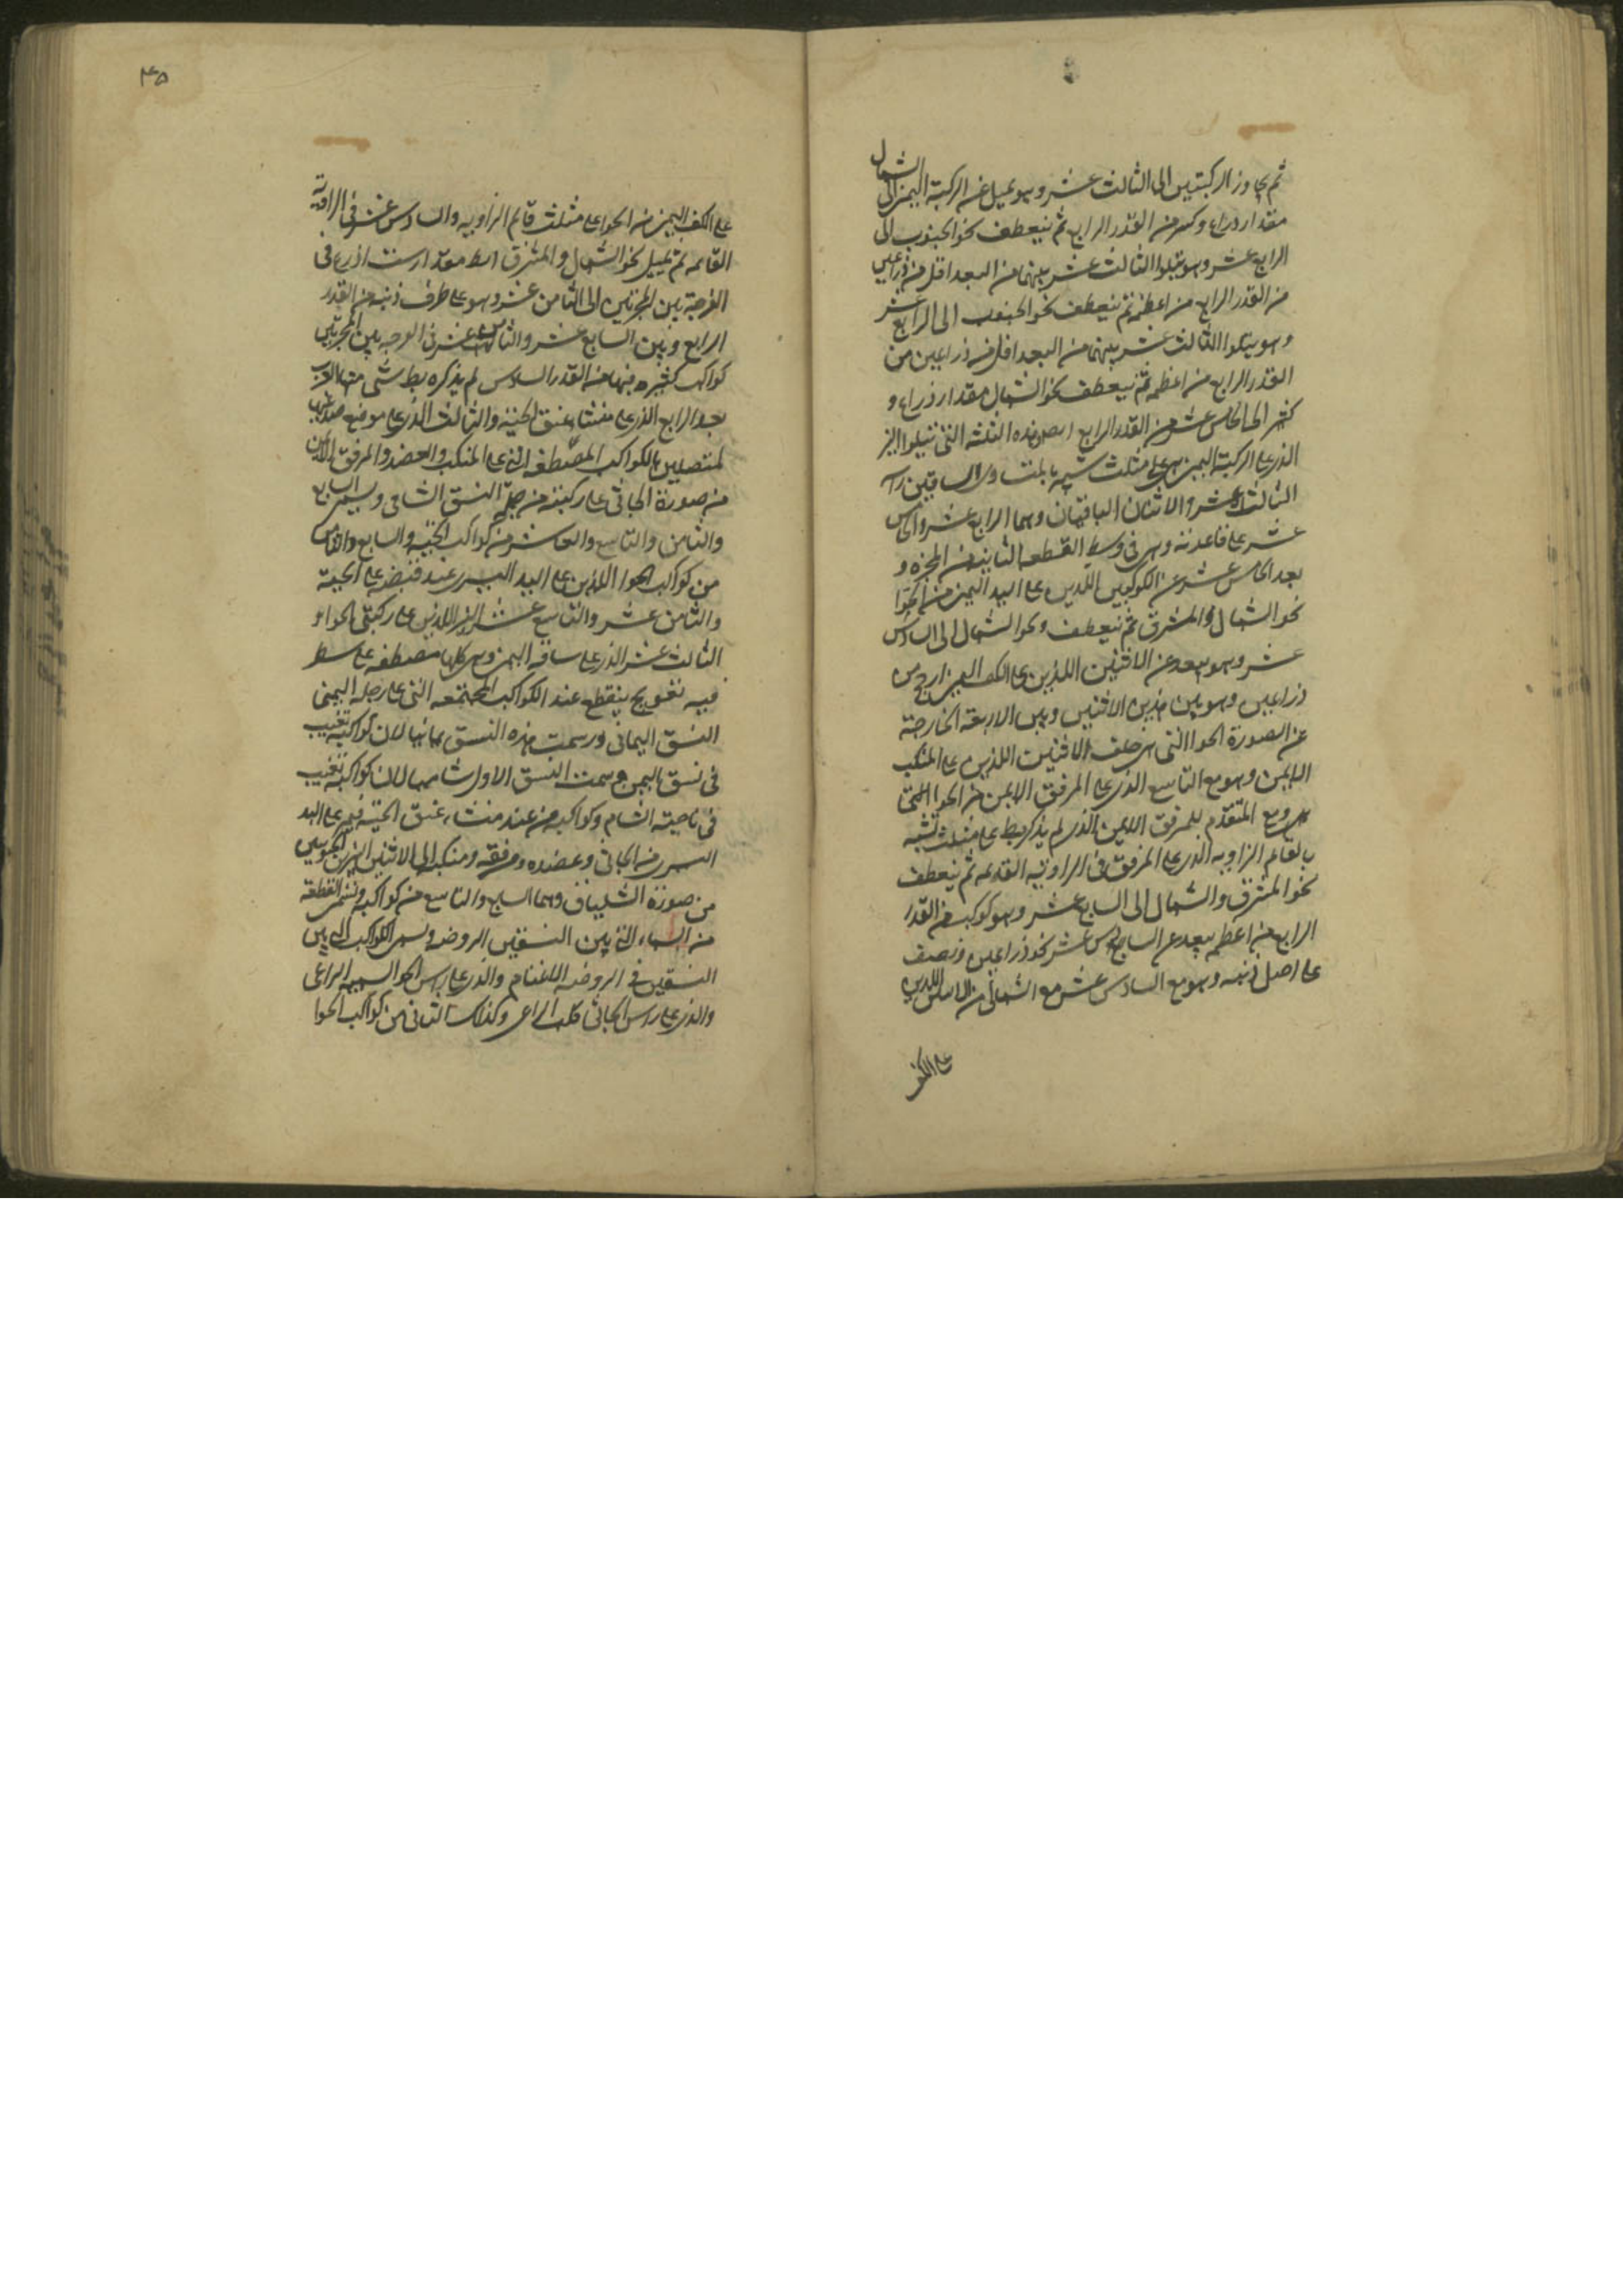 ثم يجاوز الركبتين الى الثالث عشر وهو يميل عن الركبة اليمنى الى الشمال
مقدار ذراع وكسر من القدر الرابع ثم ينعطف نحو الجنوب الى
الرابع عشر وهو يتلوا الثالث عشر بينهما من البعد اقل من ذراعين
من القدر الرابع من اعظمه ثم ينعطف نحو الجنوب الى الرابع عشر
وهو يتلوا الثالث عشر بينهما من البعد اقل من ذراعين من
القدر الرابع من اعظمه ثم ينعطف نحو الشمال مقدار ذراع و
الى الخامس عشر من القدر الرابع وهذه الثلثة التى تتلوا
الذى على الركبة اليمنى هى على مثلث شبيه بالمتساوى الساقين
الثالث عشر والاثنان الباقيان وهما الرابع عشر والخامس
عشر على قاعدته وهى فى وسط القطعه الثانيه من المجره و
بعد الخامس عشر عن الكوكبين اللذين على اليد اليمنى من الحوا
نحو الشمال والمشرق ثم ينعطف نحو الشمال الى السادس
عشر وهو يبعد عن الاثنين اللذين على الكف اليمنى ارجح من
ذراعين وهو بين هذين الاثنين وبين الاربعة الخارجة
عن الصورة الحوا التى هى خلف الاثنين اللذين على المنكب
الايمن وهو مع التاسع الذى على المرفق الايمن من الحوا
ومع المتقدم للمرفق الايمن الذى لم يذكره بط على مثلث شبيه
بالقائم الزاويه الذى على المرفق فى الزاويه القائمه ثم ينعطف
نحو المشرق والشمال الى السابع عشر وهو كوكب من القدر
الرابع من اعظمه يبعد عن السادس عشر نحو ذراعين ونصف
على اصل ذنبه وهو مع السادس عشر مع الشمالى من الاثنين اللذين
على الكف
۴۵
على الكف اليمنى من الحوا على مثلث قائم الزاويه والسادس عشر فى الزاوية
القائمه ثم يميل نحو الشمال والمشرق مقدار ست اذرع فى
الفرجة بين المجرتين الى الثامن عشر وهو على طرف ذنبه من القدر
الرابع وبين السابع عشر والثامن عشر فى الفرجه بين المجرتين
كواكب كثيره منها من القدر السادس لم يذكره بط شئى منها والعرب
الرابع الذى على منشاء عنق الحية والثالث الذى على موضع صدغيها
المتصلين بالكواكب المصطفه التى على المنكب والعضد والمرفق الايمن
من صورة الجاثى على ركبته من جملة النسق الشامى ويسمى السابع
والثامن والتاسع والعاشر من كواكب الحية والسابع والثامن
من كواكب الحوا اللذين على اليد اليسرى عند قبضه على الحية
والثامن عشر والتاسع عشر اللذين على ركبتى الحوا و
الثالث عشر الذى على ساقه اليمنى وهى كلها مصطفه على سطر
فيه تعويج ينقطع عند الكواكب المجتمعه التى على رجله اليمنى
النسق اليمانى ورسمت هذه النسق يمانيا لان كواكبه تغيب
فى نسق اليمن وسمت النسق الاول شاميا لان كواكبه تغيب
فى ناحية الشام وكواكبه من عند منشاء عنق الحية فيمر على اليد
اليسرى من الجاثى وعضده ومرفقه ومنكبه الى الاثنين النيرين الجنوبيين
من صورة الشلياق وهما السابع والتاسع من كواكبه وتسمى القطعة
من السماء التى بين النسقين الروضه ويسمى الكواكب التى بين
النسقين فى الروضه الاغنام والذى على راس الحوا الراعى
والذى على راس الجاثى كلب الراعى وكذلك الثانى من كواكب الحوا